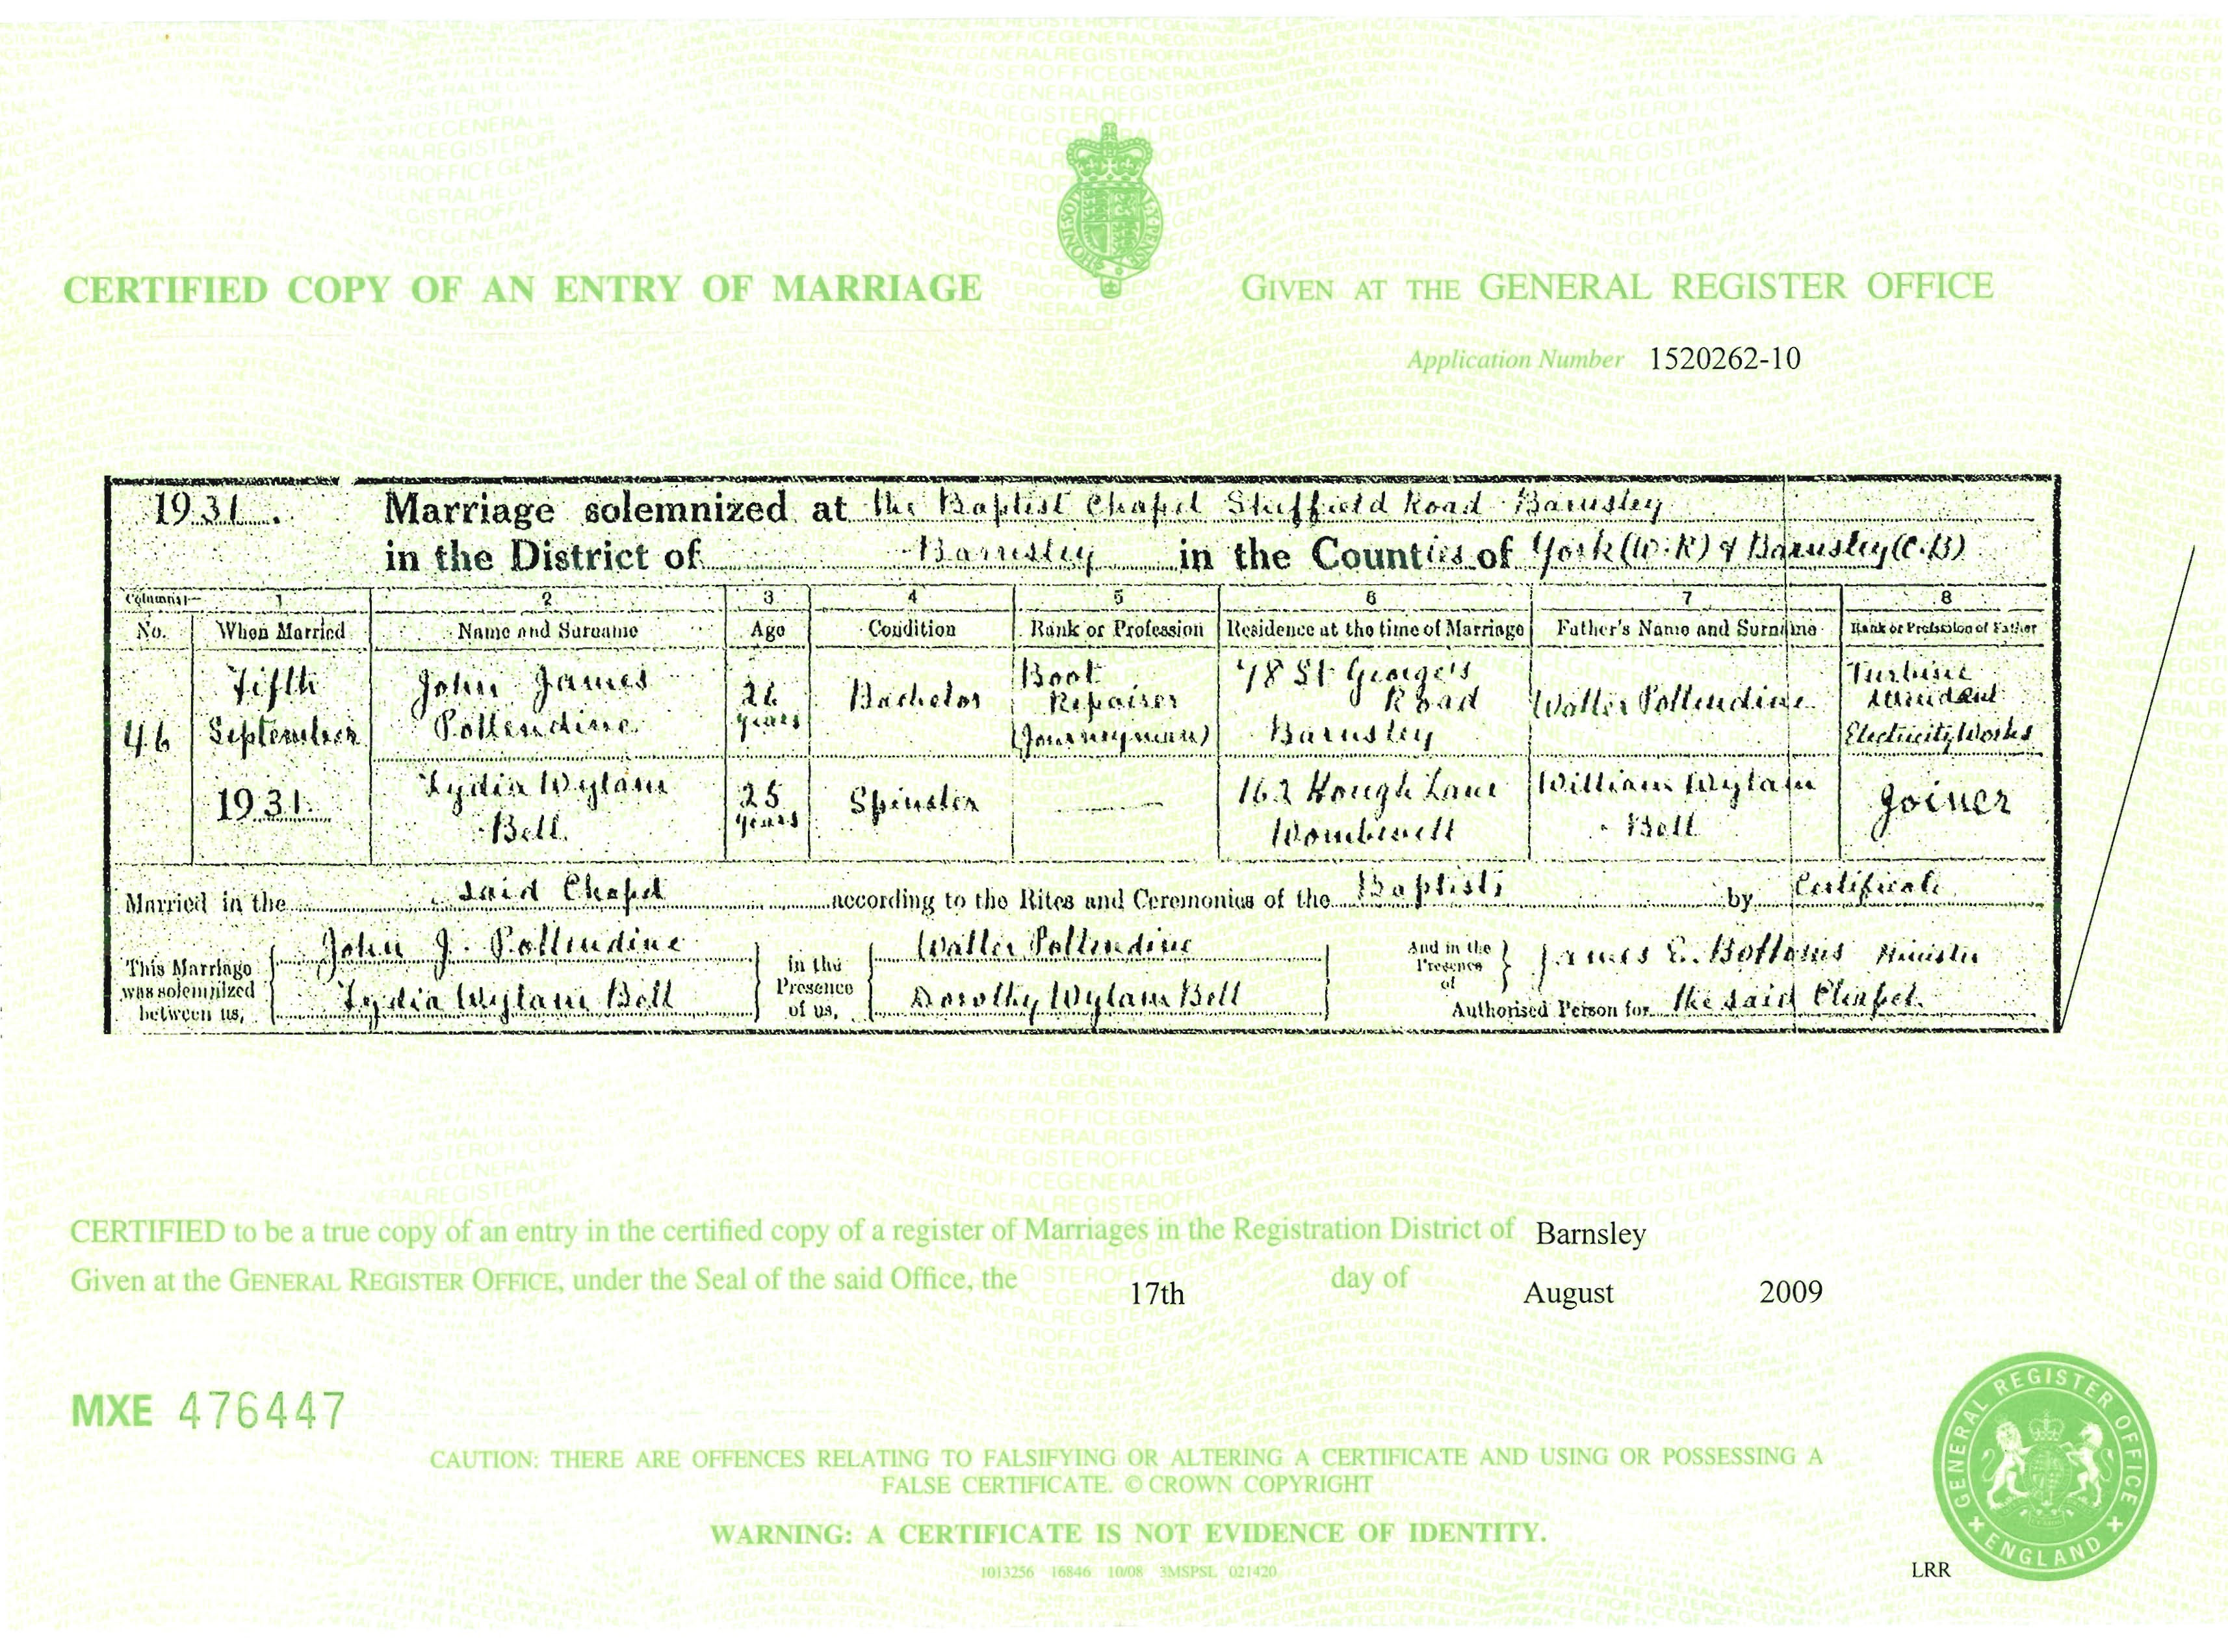 CERTIFIED COPY OF AN ENTRY OF MARRIAGE
GIVEN AT THE GENERAL REGISTER OFFICE
Application Number 1520262-10
1931. Marriage solemnized at the Baptist Chapel Sheffield Road Barnsley
in the District of Barnsley in the Counties of York (W.R) & Barnsley (C.B)
Columns:- 1 2 3 4 5 6 7 8
No. When Married Name and Surname Age Condition Rank or Profession Residence at the time of Marriage Father's Name and Surname Rank or Profession of Father
46 Fifth September 1931
John James Pollendine 26 years Bachelor Boot Repairer (Journeyman) 78 St George's Road Barnsley Walter Pollendine Turbine Attendant Electricity Works
Lydia Wylam Bell 25 years Spinster 162 Hough Lane Wombwell William Wylam Bell Joiner
Married in the said Chapel according to the Rites and Ceremonies of the Baptists by Certificate
This Marriage was solemnized between us, John J. Pollendine Lydia Wylam Bell
in the Presence of us, Walter Pollendine Dorothy Wylam Bell
And in the Presence of James E. Minister
Authorised Person for the said Chapel.
CERTIFIED to be a true copy of an entry in the certified copy of a register of Marriages in the Registration District of Barnsley
Given at the GENERAL REGISTER OFFICE, under the Seal of the said Office, the 17th day of August 2009
MXE 476447
CAUTION: THERE ARE OFFENCES RELATING TO FALSIFYING OR ALTERING A CERTIFICATE AND USING OR POSSESSING A
FALSE CERTIFICATE. © CROWN COPYRIGHT
WARNING: A CERTIFICATE IS NOT EVIDENCE OF IDENTITY.
1013256 16846 10/08 3MSPSL 021420
GENERAL REGISTER OFFICE
ENGLAND
LRR